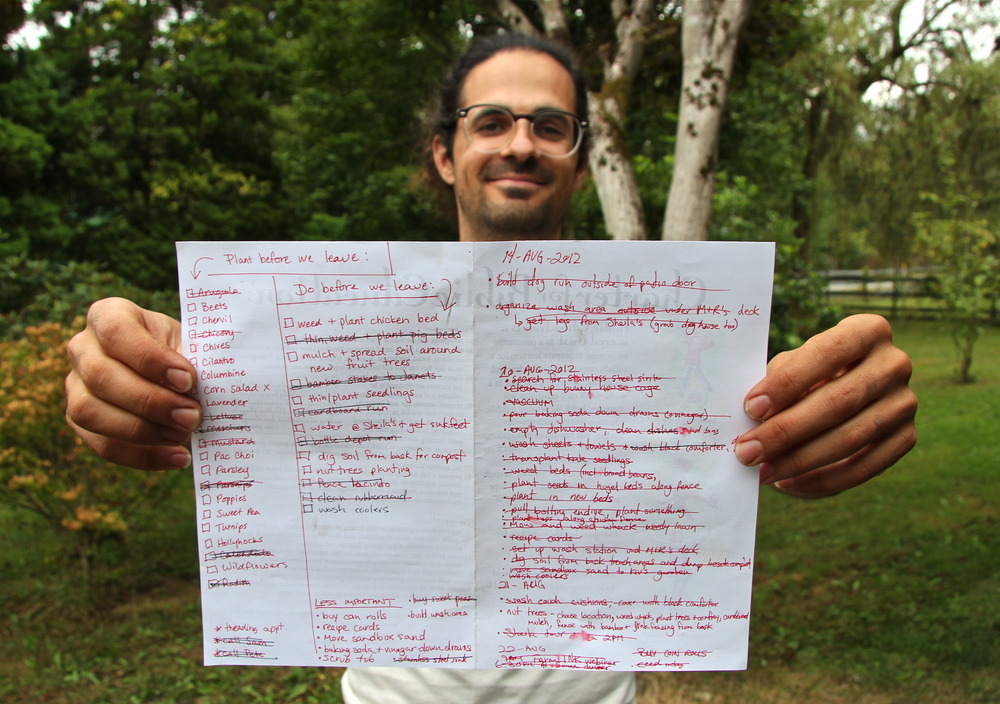 Plant before we leave:
Arugula
Beets
Chervil
Chicory
Chives
Cilantro
Columbine
Corn Salad x
Lavender
Lettuce
Mustard
Pac Choi
Parsley
Parsnips
Poppies
Sweet Pea
Turnips
Hollyhocks
Wildflowers
Radish
* threading appt.
* Call Sam
* Call Pete
Do before we leave:
weed + plant chicken bed
thin, weed + plant pig beds
mulch + spread soil around
new fruit trees
bamboo stakes to Janets
thin/plant seedlings
cardboard run
water @ Sheila's + get sink feet
bottle depot run
dig soil from back for compost
nut trees planting
fence
clean rubbermaid
wash coolers
LESS IMPORTANT
• buy can rolls
• recipe cards
• More sandbox sand
• baking soda + vinegar down drains
• scrub tub
• buy sweet peas
• build wash area
• stainless steel sink
14-AUG-2012
• build dog run outside of patio door
• organize wash area outside under M+R's deck
↳ get lego from Sheila's (grab dog house too)
20-AUG-2012
• search for stainless steel sink
• clean up bunny house cage
• vacuum
• pour baking soda down drains (+ vinegar)
• empty dishwasher, clean dishes
• wash sheets + towels + wash black comforter,
• transplant kale seedlings
• weed beds (incl. broad beans,
• plant seeds in hugel beds along fence
• plant in new beds
• pull bolting endive, plant something
• plant hops along studio fence
• Mow and weed whack weedy lawn
• recipe cards
• set up wash station und M+R's deck
• dig soil from back trench areas and dump beside compost
• move sandbox sand to Kiv's garden
• wash coolers
21-AUG
• wash couch cushions, cover with black comforter
• nut trees - chose location, weed whack, plant trees + comfrey, cardboard
mulch, fence with bamboo + pink fencing from back
• Sheila tour 2PM
22-AUG
9AM Farm LINK webinar
• BUY COIN ROLLS
• seed notes